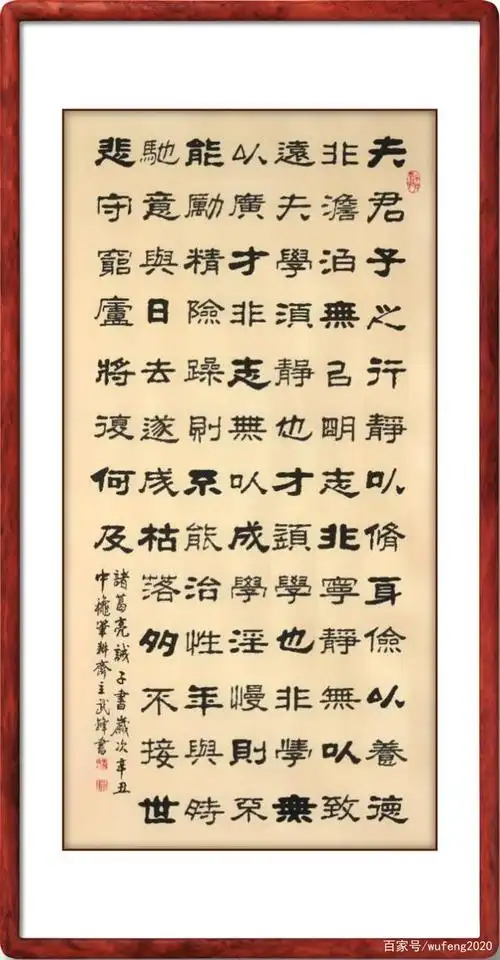 夫君子之行靜以脩身儉以養德
非澹泊無以明志非寧靜無以致
遠夫學須靜也才須學也非學無
以廣才非志無以成學淫慢則不
能勵精險躁則不能治性年與時
馳意與日去遂成枯落多不接世
悲守窮廬將復何及
諸葛亮誡子書歲次辛丑
中穐筆耕齋主武鋒書
百家号/wufeng2020